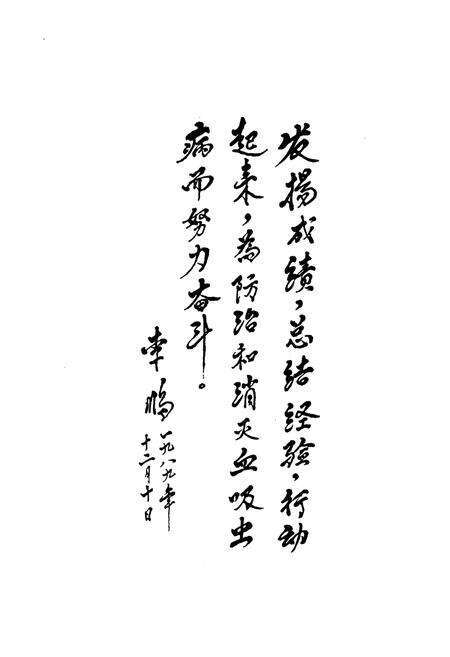 发揚成績，总结经验，行动
起来，為防治和消灭血吸虫
病而努力奋斗。
李鹏
一九八九年
十二月十日